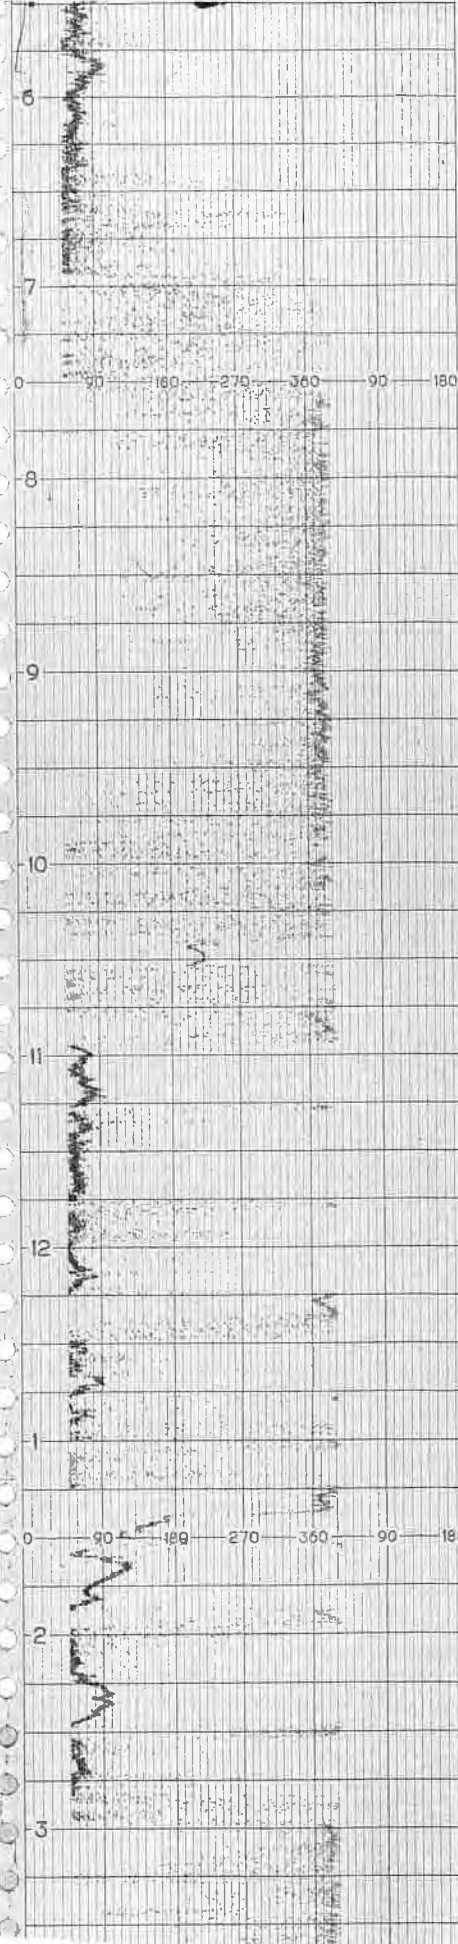 6
7
0 90 180 270 360 90 180
8
9
10
11
12
1
0 90 180 270 360 90 18
2
3